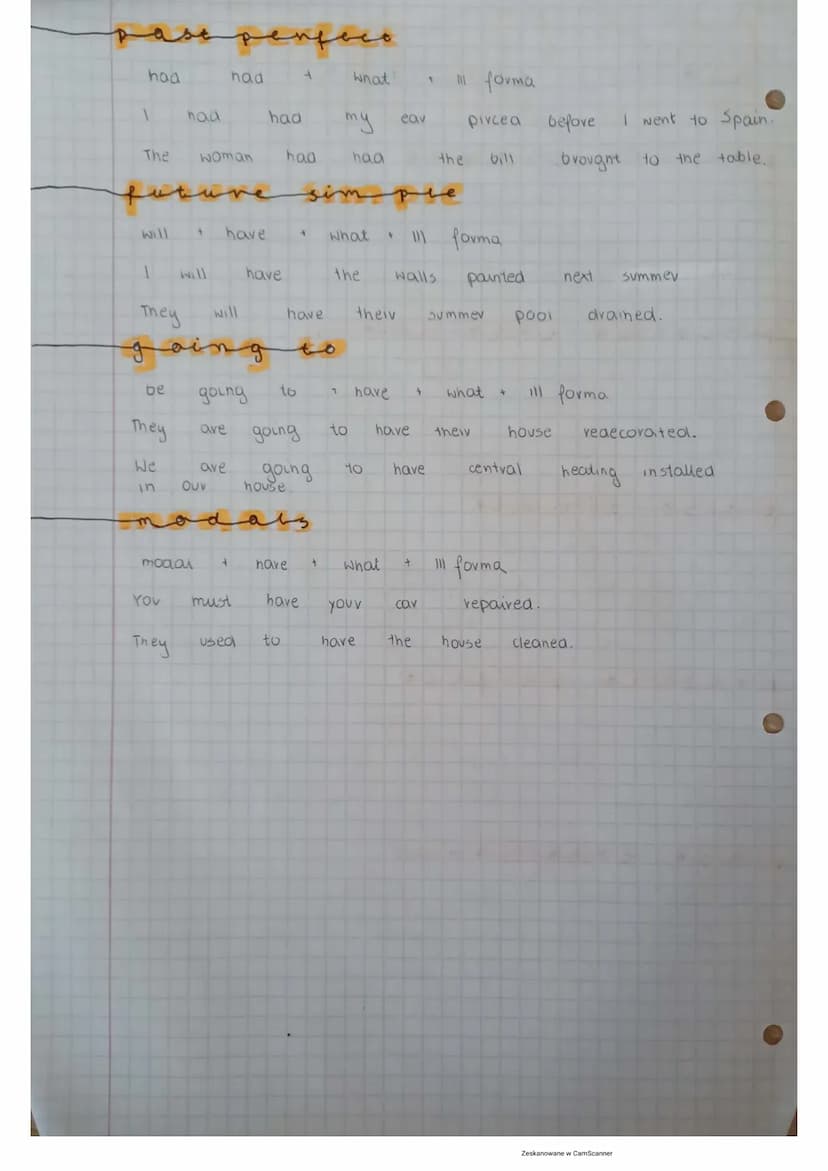 past perfect
had had + what + III forma
I had had my ear pirced before I went to Spain.
The woman had had the bill brought to the table.
future simple
will + have + what + III forma
I will have the walls painted next summer
They will have their summer pool drained.
going to
be going to + have + what + III forma
They are going to have their house redecorated.
We are going to have central heating installed
in our house.
modals
modal + have + what + III forma
You must have your car repaired.
They used to have the house cleaned.
Zeskanowane w CamScanner